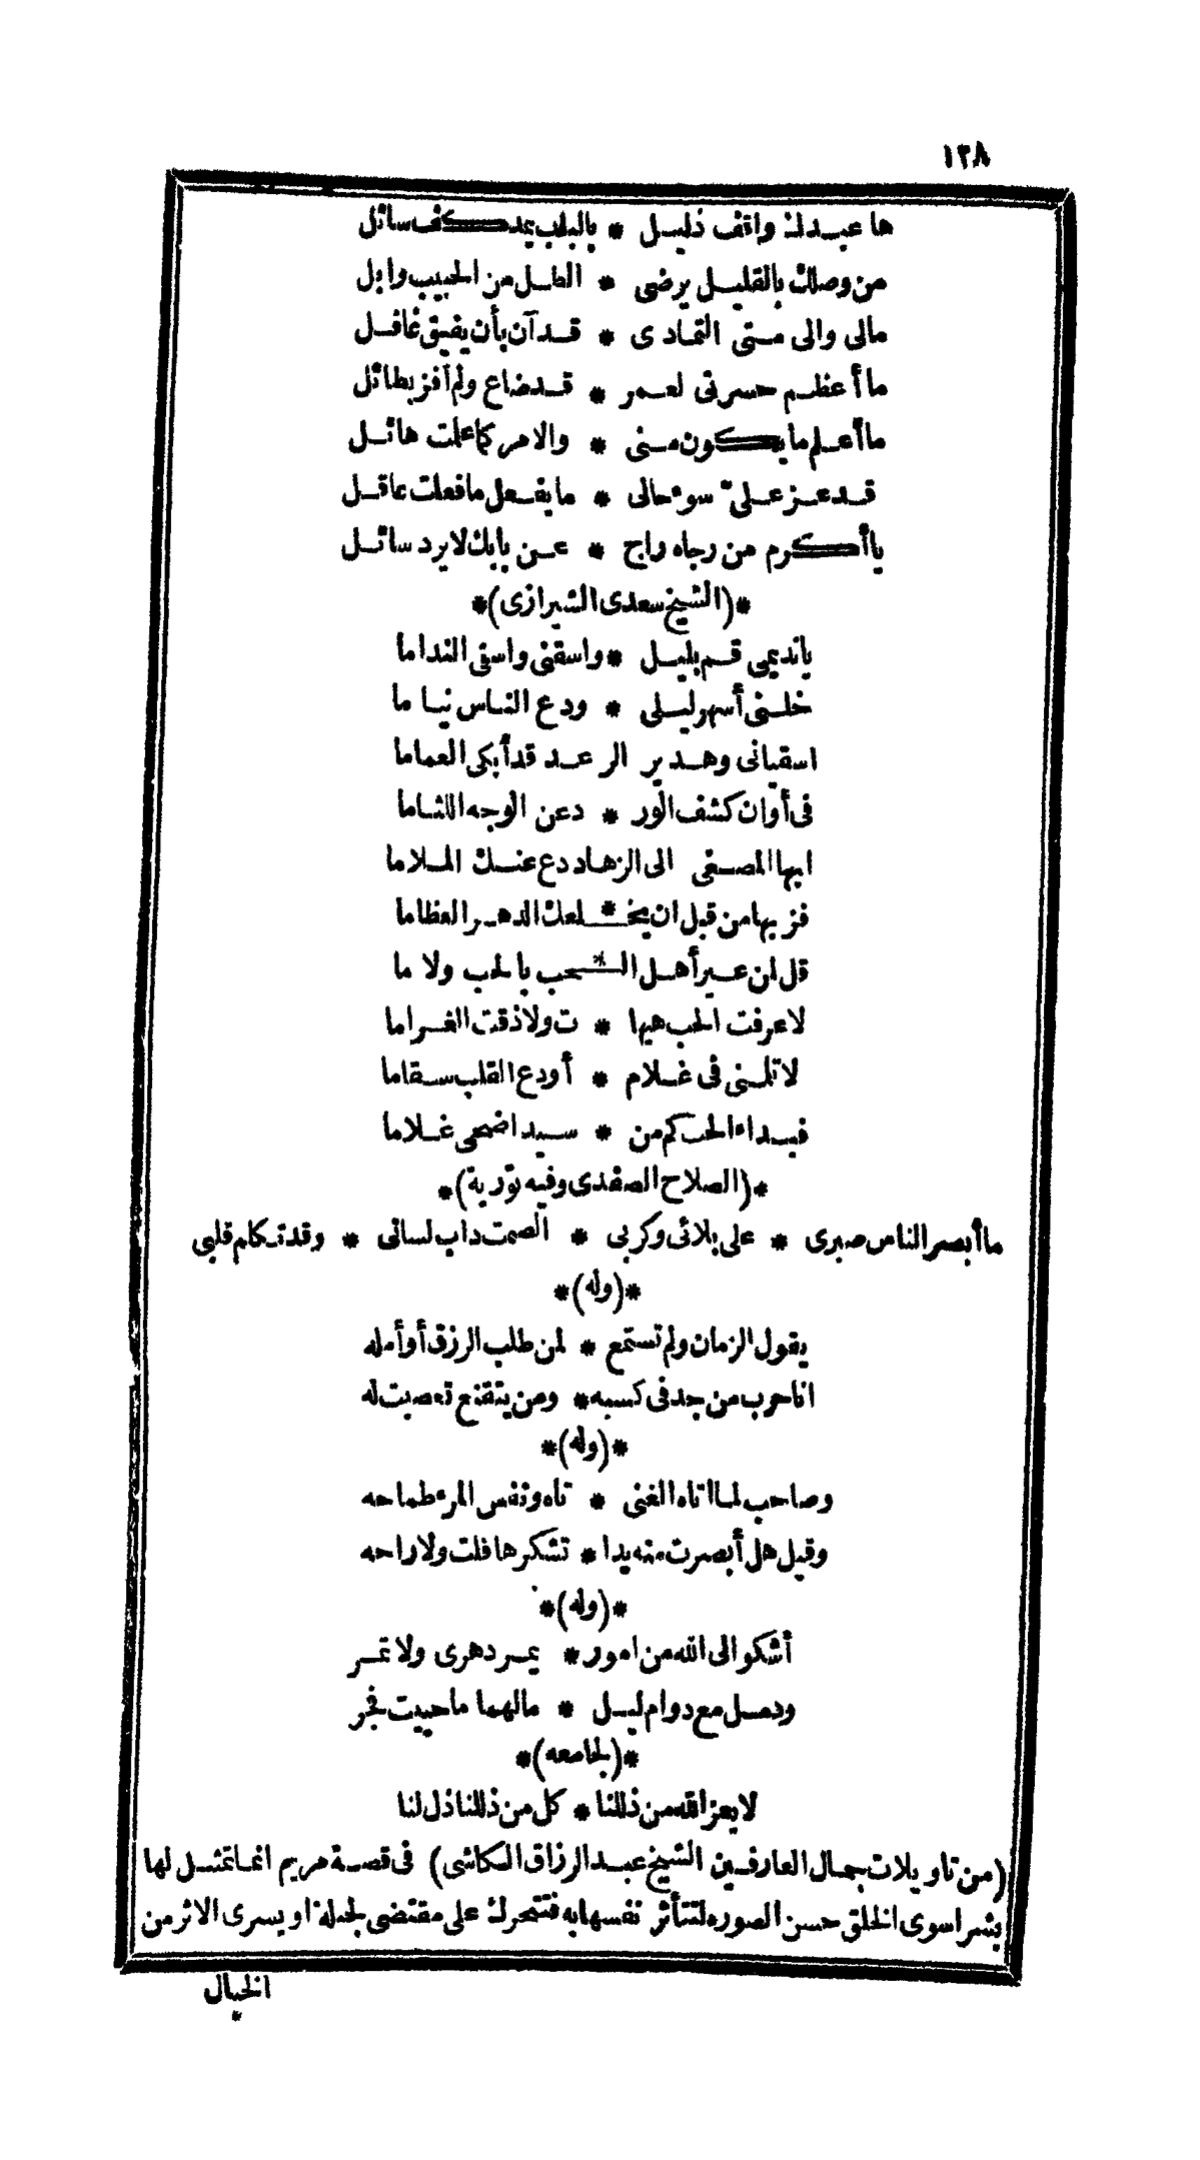 ١٣٨
ها عبدك واقف ذليل * بالباب يمد كف سائل
من وصلك بالقليل يرضى * الطل من الحبيب وابل
مالى والى متى التمادى * قد آن بأن يفيق غافل
ما أعظم حسرتى لعمر * قد ضاع ولم أفز بطائل
ما أعلم ما يكون منى * والامر كما علمت هائل
قد عز على سوء حالى * ما يفعل ما فعلت عاقل
يا أكرم من رجاه راج * عن بابك لا يرد سائل
*(الشيخ سعدى الشيرازى)*
يا نديمى قم بليل * واسقنى واسق الندا ما
خلنى أسهر ليلى * ودع الناس نياما
اسقيانى وهدير الرعد قد أبكى الغماما
فى أوان كشف الور * دعن الوجه اللثاما
ايها المصغى الى الزهاد دع عنك الملاما
فز بها من قبل ان يجعلك الدهر العظاما
قل لمن عير أهل الـ * ـحب بالحب ولا ما
لا عرفت الحب هيها * ت ولا ذقت الغراما
لا تلمنى فى غلام * أودع القلب سقاما
فبداء الحب كم من * سيد اضحى غلاما
*(الصلاح الصفدى وفيه تورية)*
ما أبصر الناس صبرى * على بلائى وكربى * الصمت داب لسانى * وقد تكلم قلبى
*(وله)*
يقول الزمان ولم تستمع * لمن طلب الرزق أو أمله
انا حرب من جد فى كسبه * ومن يتقنع تعصبت له
*(وله)*
وصاحب لما اتاه الغنى * تاه ونفس المرء طماحه
وقيل هل أبصرت منه يدا * تشكرها قلت ولا راحه
*(وله)*
أشكو الى الله من امور * يمر دهرى ولا تمر
ودمل مع دوام ليل * مالهما ما حييت فجر
*(لجامعه)*
لا يعز الله من ذللنا * كل من ذللنا ذل لنا
(من تاويلات جمال العارفين الشيخ عبد الرزاق الكاشى) فى قصة مريم انما تمثل لها
بشرا سوى الخلق حسن الصوره لتتأثر نفسها به فتتحرك على مقتضى الجبلة او يسرى الاثر من
الخيال